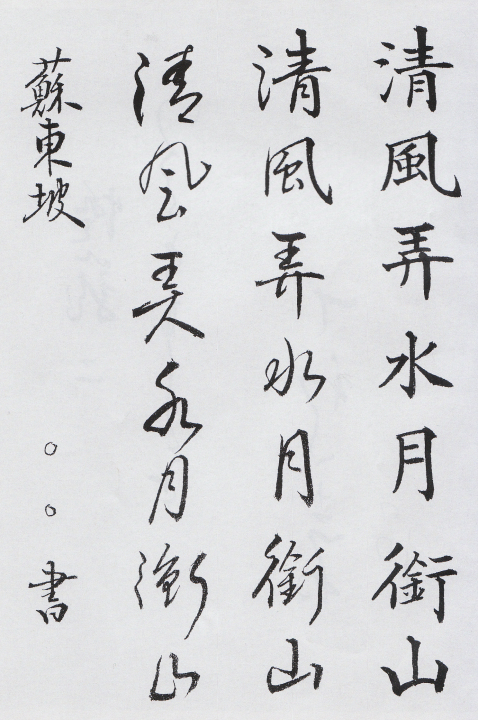 清風弄水月銜山
清風弄水月銜山
清風弄水月銜山
蘇東坡
○○書